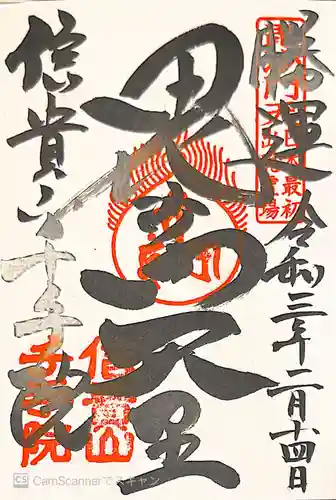 勝運
令和三年二月十四日
毘沙門天王
信貴山千手院
最初
霊場
信貴山
千手院
CS CamScannerでスキャン